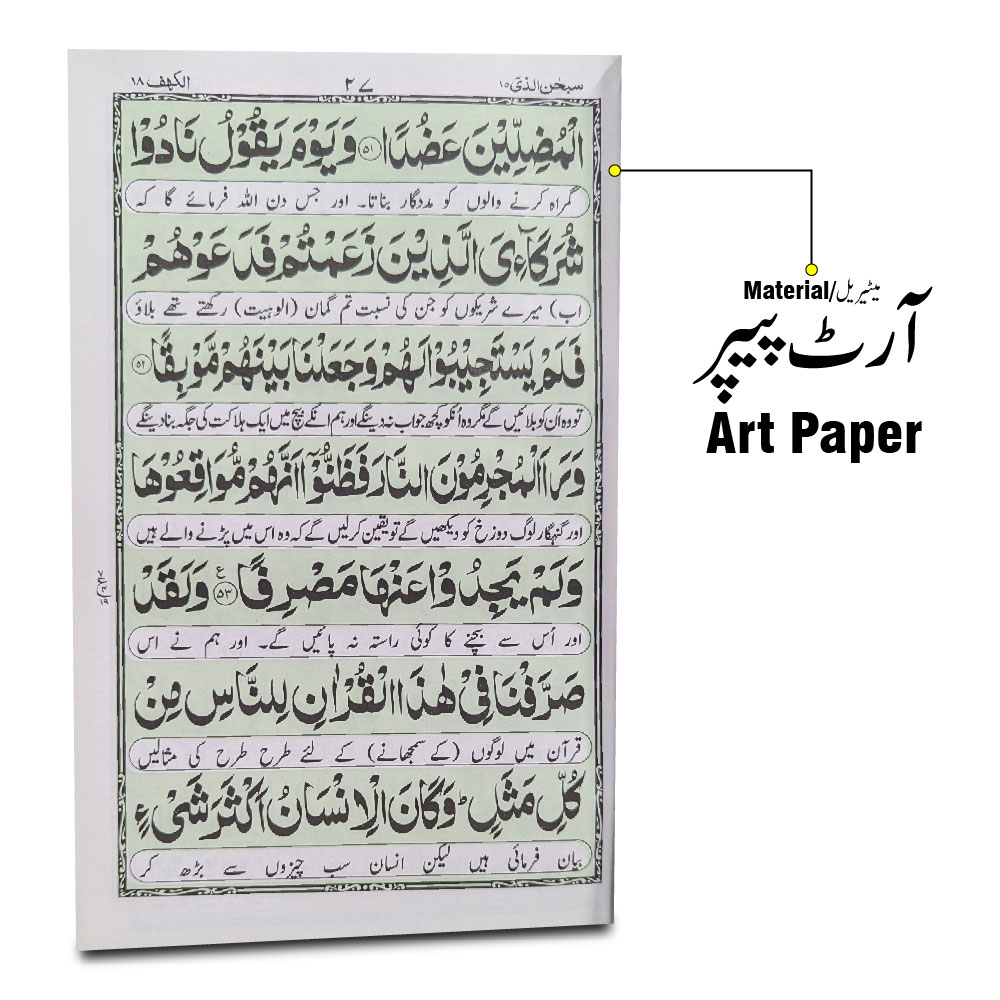 سبحٰن الذی ١٥
٢٧
الکہف ١٨
الْمُضِلِّيْنَ عَضُدًا ﴿٥١﴾ وَيَوْمَ يَقُوْلُ نَادُوْا
گمراہ کرنے والوں کو مددگار بناتا۔ اور جس دن اللہ فرمائے گا کہ
شُرَكَآءِيَ الَّذِيْنَ زَعَمْتُمْ فَدَعَوْهُمْ
اب) میرے شریکوں کو جن کی نسبت تم گمان (الوہیت) رکھتے تھے بلاؤ
فَلَمْ يَسْتَجِيْبُوْا لَهُمْ وَجَعَلْنَا بَيْنَهُمْ مَّوْبِقًا ﴿٥٢﴾
تو وہ اُن کو بلائیں گے مگر وہ اُنکو کچھ جواب نہ دینگے اور ہم انکے بیچ میں ایک ہلاکت کی جگہ بنا دینگے
وَرَاَ الْمُجْرِمُوْنَ النَّارَ فَظَنُّوْٓا اَنَّهُمْ مُّوَاقِعُوْهَا
اور گنہگار لوگ دوزخ کو دیکھیں گے تو یقین کرلیں گے کہ وہ اس میں پڑنے والے ہیں
وَلَمْ يَجِدُوْا عَنْهَا مَصْرِفًا ﴿٥٣﴾ ع وَلَقَدْ
اور اُس سے بچنے کا کوئی راستہ نہ پائیں گے۔ اور ہم نے اس
صَرَّفْنَا فِيْ هٰذَا الْقُرْاٰنِ لِلنَّاسِ مِنْ
قرآن میں لوگوں (کے سمجھانے) کے لئے طرح طرح کی مثالیں
كُلِّ مَثَلٍ ؕ وَكَانَ الْاِنْسَانُ اَكْثَرَ شَيْءٍ
بیان فرمائی ہیں لیکن انسان سب چیزوں سے بڑھ کر
Material/میٹیریل
آرٹ پیپر
Art Paper